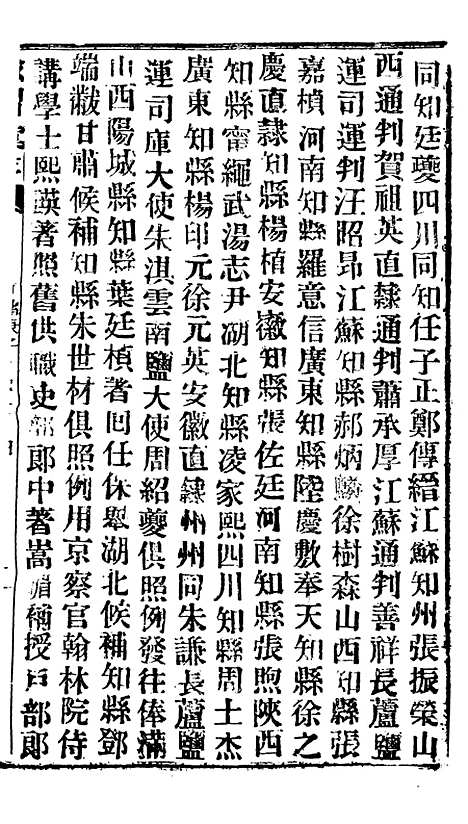 同知廷夔四川同知任子正鄭傳縉江蘇知州張振榮山
西通判賀祖英直隸通判蕭承厚江蘇通判善祥長蘆鹽
運司運判汪昭昂江蘇知縣郝炳麟徐樹森山西知縣張
嘉楨河南知縣羅意信廣東知縣陸慶敷奉天知縣徐之
慶直隸知縣楊植安徽知縣張佐廷河南知縣張煦陝西
知縣甯繩武湯志尹湖北知縣凌家熙四川知縣周士杰
廣東知縣楊印元徐元英安徽直隸州州同朱謙長蘆鹽
運司庫大使朱淇雲南鹽大使周紹夔俱照例發往俸滿
山西陽城縣知縣葉廷楨著回任保舉湖北候補知縣鄧
端黻甘肅候補知縣朱世材俱照例用京察官翰林院侍
講學士熙瑛著照舊供職史部郎中著嵩補授戸部郎